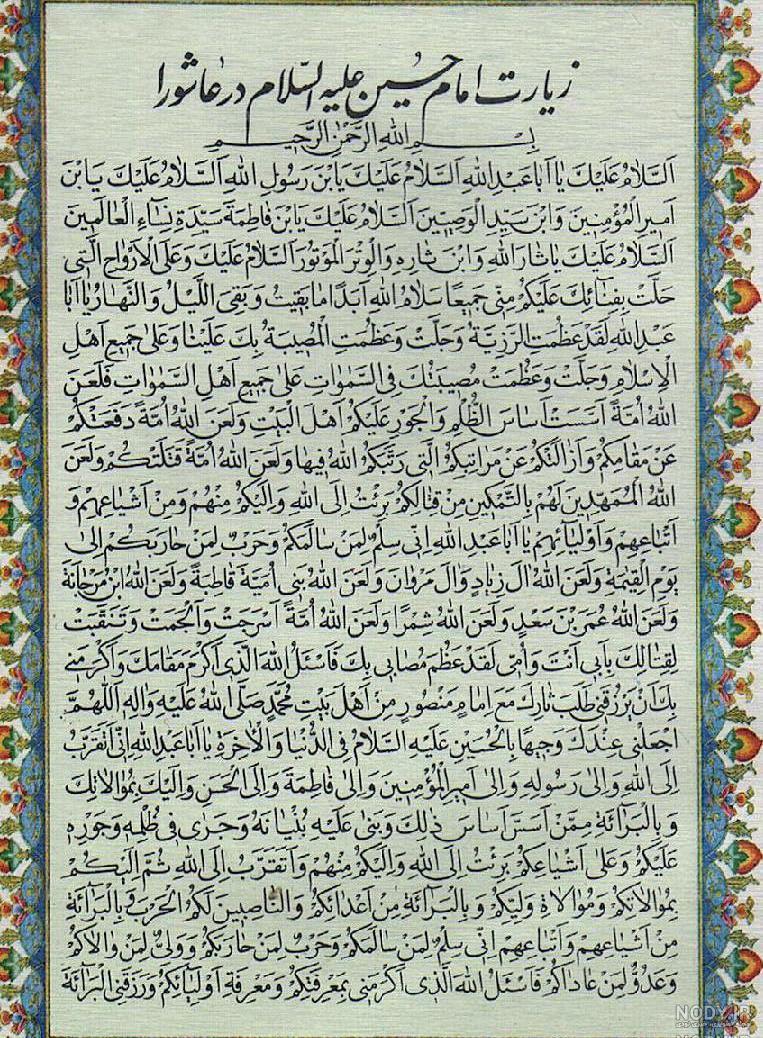 زیارت امام حسین علیه السّلام در عاشورا
بِسْمِ اللهِ الرَّحْمٰنِ الرَّحیمِ
اَلسَّلامُ عَلَيْكَ يا اَبا عَبْدِ اللهِ اَلسَّلامُ عَلَيْكَ يَابْنَ رَسُولِ اللهِ اَلسَّلامُ عَلَيْكَ يَابْنَ
اَميرِ الْمُؤْمِنينَ وَابْنَ سَيِّدِ الْوَصِيّينَ اَلسَّلامُ عَلَيْكَ يَابْنَ فاطِمَةَ سَيِّدَةِ نِسٰاءِ الْعالَمينَ
اَلسَّلامُ عَلَيْكَ يا ثارَ اللهِ وَابْنَ ثارِهِ وَالْوِتْرَ الْمَوْتُورَ اَلسَّلامُ عَلَيْكَ وَعَلَى الْاَرْواحِ الَّتي
حَلَّتْ بِفِنائِكَ عَلَيْكُمْ مِنّي جَميعًا سَلامُ اللهِ اَبَدًا ما بَقيتُ وَبَقِيَ اللَّيْلُ وَالنَّهارُ يا اَبا
عَبْدِ اللهِ لَقَدْ عَظُمَتِ الرَّزِيَّةُ وَجَلَّتْ وَعَظُمَتِ الْمُصيبَةُ بِكَ عَلَيْنا وَعَلىٰ جَميعِ اَهْلِ
الْاِسْلامِ وَجَلَّتْ وَعَظُمَتْ مُصيبَتُكَ فِي السَّمٰواتِ عَلىٰ جَميعِ اَهْلِ السَّمٰواتِ فَلَعَنَ
اللهُ اُمَّةً اَسَّسَتْ اَساسَ الظُّلْمِ وَالْجَوْرِ عَلَيْكُمْ اَهْلَ الْبَيْتِ وَلَعَنَ اللهُ اُمَّةً دَفَعَتْكُمْ
عَنْ مَقامِكُمْ وَاَزالَتْكُمْ عَنْ مَراتِبِكُمُ الَّتي رَتَّبَكُمُ اللهُ فيها وَلَعَنَ اللهُ اُمَّةً قَتَلَتْكُمْ وَلَعَنَ
اللهُ الْمُمَهِّدينَ لَهُمْ بِالتَّمْكينِ مِنْ قِتالِكُمْ بَرِئْتُ اِلَى اللهِ وَاِلَيْكُمْ مِنْهُمْ وَمِنْ اَشْياعِهِمْ وَ
اَتْباعِهِمْ وَاَوْلِيآئِهِمْ يا اَبا عَبْدِ اللهِ اِنّي سِلْمٌ لِمَنْ سالَمَكُمْ وَحَرْبٌ لِمَنْ حارَبَكُمْ اِلىٰ
يَوْمِ الْقِيٰمَةِ وَلَعَنَ اللهُ آلَ زِيادٍ وَآلَ مَرْوانَ وَلَعَنَ اللهُ بَني اُمَيَّةَ قاطِبَةً وَلَعَنَ اللهُ ابْنَ مَرْجانَةَ
وَلَعَنَ اللهُ عُمَرَ بْنَ سَعْدٍ وَلَعَنَ اللهُ شِمْرًا وَلَعَنَ اللهُ اُمَّةً اَسْرَجَتْ وَاَلْجَمَتْ وَتَنَقَّبَتْ
لِقِتالِكَ بِاَبي اَنْتَ وَاُمّي لَقَدْ عَظُمَ مُصابي بِكَ فَاَسْئَلُ اللهَ الَّذي اَكْرَمَ مَقامَكَ وَاَكْرَمَني
بِكَ اَنْ يَرْزُقَني طَلَبَ ثارِكَ مَعَ اِمامٍ مَنْصُورٍ مِنْ اَهْلِ بَيْتِ مُحَمَّدٍ صَلَّى اللهُ عَلَيْهِ وَالِهِ اَللّٰهُمَّ
اجْعَلْني عِنْدَكَ وَجيهًا بِالْحُسَيْنِ عَلَيْهِ السَّلامُ فِي الدُّنْيا وَالْاٰخِرَةِ يا اَبا عَبْدِ اللهِ اِنّي اَتَقَرَّبُ
اِلَى اللهِ وَاِلىٰ رَسُولِهِ وَاِلىٰ اَميرِ الْمُؤْمِنينَ وَاِلىٰ فاطِمَةَ وَاِلَى الْحَسَنِ وَاِلَيْكَ بِمُوالاتِكَ
وَبِالْبَرائَةِ مِمَّنْ اَسَّسَ اَساسَ ذٰلِكَ وَبَنىٰ عَلَيْهِ بُنْيانَهُ وَجَرىٰ في ظُلْمِهِ وَجَوْرِهِ
عَلَيْكُمْ وَعَلىٰ اَشْياعِكُمْ بَرِئْتُ اِلَى اللهِ وَاِلَيْكُمْ مِنْهُمْ وَاَتَقَرَّبُ اِلَى اللهِ ثُمَّ اِلَيْكُمْ
بِمُوالاتِكُمْ وَمُوالاةِ وَلِيِّكُمْ وَبِالْبَرآئَةِ مِنْ اَعْدائِكُمْ وَالنّاصِبينَ لَكُمُ الْحَرْبَ وَبِالْبَرآئَةِ
مِنْ اَشْياعِهِمْ وَاَتْباعِهِمْ اِنّي سِلْمٌ لِمَنْ سالَمَكُمْ وَحَرْبٌ لِمَنْ حارَبَكُمْ وَوَلِيٌّ لِمَنْ والاكُمْ
وَعَدُوٌّ لِمَنْ عاداكُمْ فَاَسْئَلُ اللهَ الَّذي اَكْرَمَني بِمَعْرِفَتِكُمْ وَمَعْرِفَةِ اَوْلِيآئِكُمْ وَرَزَقَنِي الْبَرآئَةَ
NODY.IR